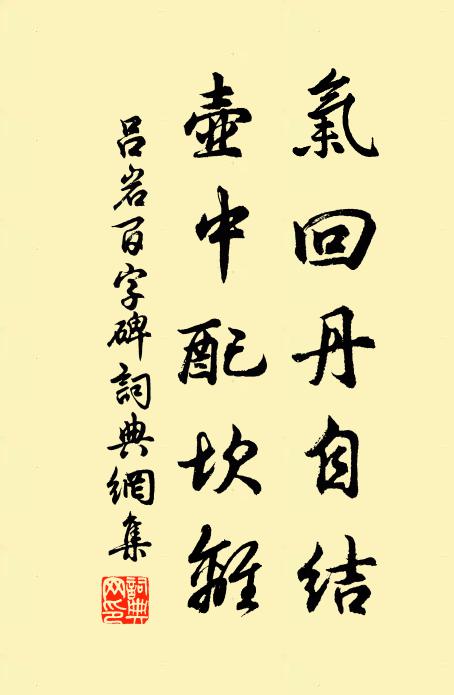 氣回丹自結
壺中配坎離
吕岩百字碑詞典網集
詞典網印